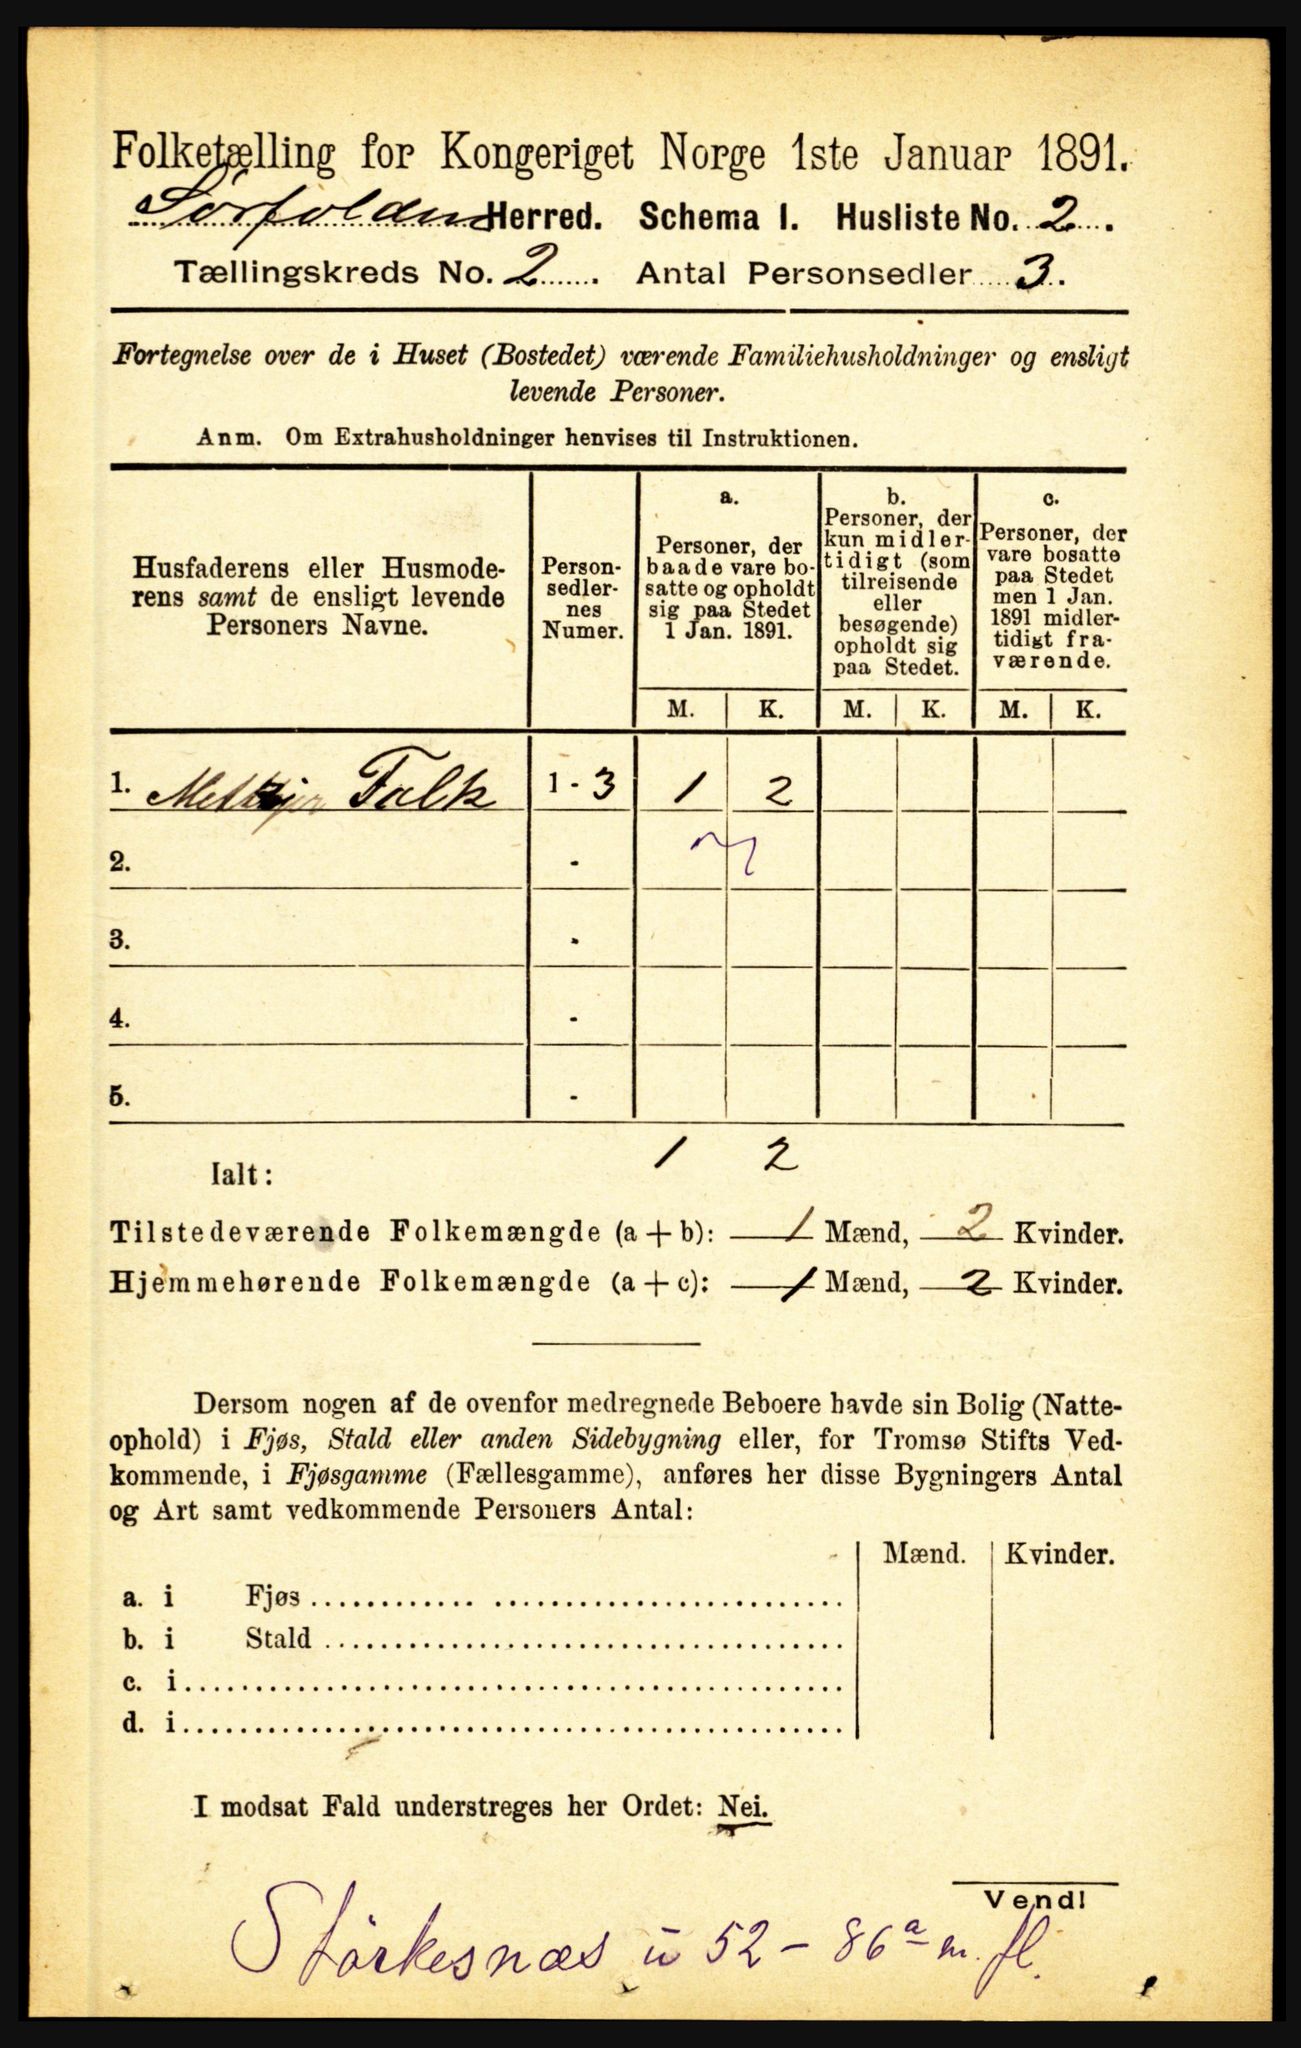 Folketælling for Kongeriget Norge 1ste Januar 1891.
Sørfolden Herred. Schema I. Husliste No. 2.
Tællingskreds No. 2. Antal Personsedler 3.
Fortegnelse over de i Huset (Bostedet) værende Familiehusholdninger og ensligt
levende Personer.
Anm. Om Extrahusholdninger henvises til Instruktionen.
Husfaderens eller Husmode-
rens samt de ensligt levende
Personers Navne.
Person-
sedler-
nes
Numer.
a.
Personer, der
baade vare bo-
satte og opholdt
sig paa Stedet
1 Jan. 1891.
b.
Personer, der
kun midler-
tidigt (som
tilreisende
eller
besøgende)
opholdt sig
paa Stedet.
c.
Personer, der
vare bosatte
paa Stedet
men 1 Jan.
1891 midler-
tidigt fra-
værende.
M. K. M. K. M. K.
1. Falk 1 - 3 1 2
2. -
3. -
4. -
5. -
Ialt: 1 2
Tilstedeværende Folkemængde (a + b): 1 Mænd, 2 Kvinder.
Hjemmehørende Folkemængde (a + c): 1 Mænd, 2 Kvinder.
Dersom nogen af de ovenfor medregnede Beboere havde sin Bolig (Natte-
ophold) i Fjøs, Stald eller anden Sidebygning eller, for Tromsø Stifts Ved-
kommende, i Fjøsgamme (Fællesgamme), anføres her disse Bygningers Antal
og Art samt vedkommende Personers Antal:
Mænd. Kvinder.
a. i Fjøs
b. i Stald
c. i
d. i
I modsat Fald understreges her Ordet: Nei.
Vend!
Störkesnæs ü 52 - 86a m. fl.